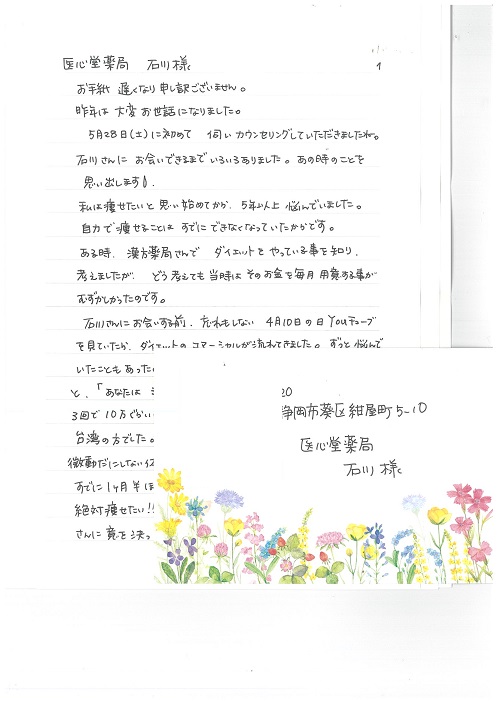 医心堂薬局 石川様
1
お手紙 遅くなり申し訳ございません。
昨年は 大変お世話になりました。
5月28日(土)に初めて 伺いカウンセリングしていただきましたね。
石川さんに お会いできるまでいろいろありました。あの時のことを
思い出します!
私は痩せたいと思い始めてから、5年以上 悩んでいました。
自力で痩せることは すでにできなくなっていたからです。
ある時、漢方薬局さんで ダイエットをやっている事を知り、
考えましたが、どう考えても当時は そのお金を毎月 用意する事が
むずかしかったのです。
石川さんにお会いする前、忘れもしない 4月10日の日 Youチューブ
を見ていたら、ダイエットのコマーシャルが流れてきました。ずっと悩んで
いたこともあった
と、「あなたは
3回で10万ぐらい
台湾の方でした。
微動だにしない
すでに1ヶ月半ほ
絶対痩せたい!!
さんに竟を決っ
20
静岡市葵区紺屋町5-10
医心堂薬局
石川 様